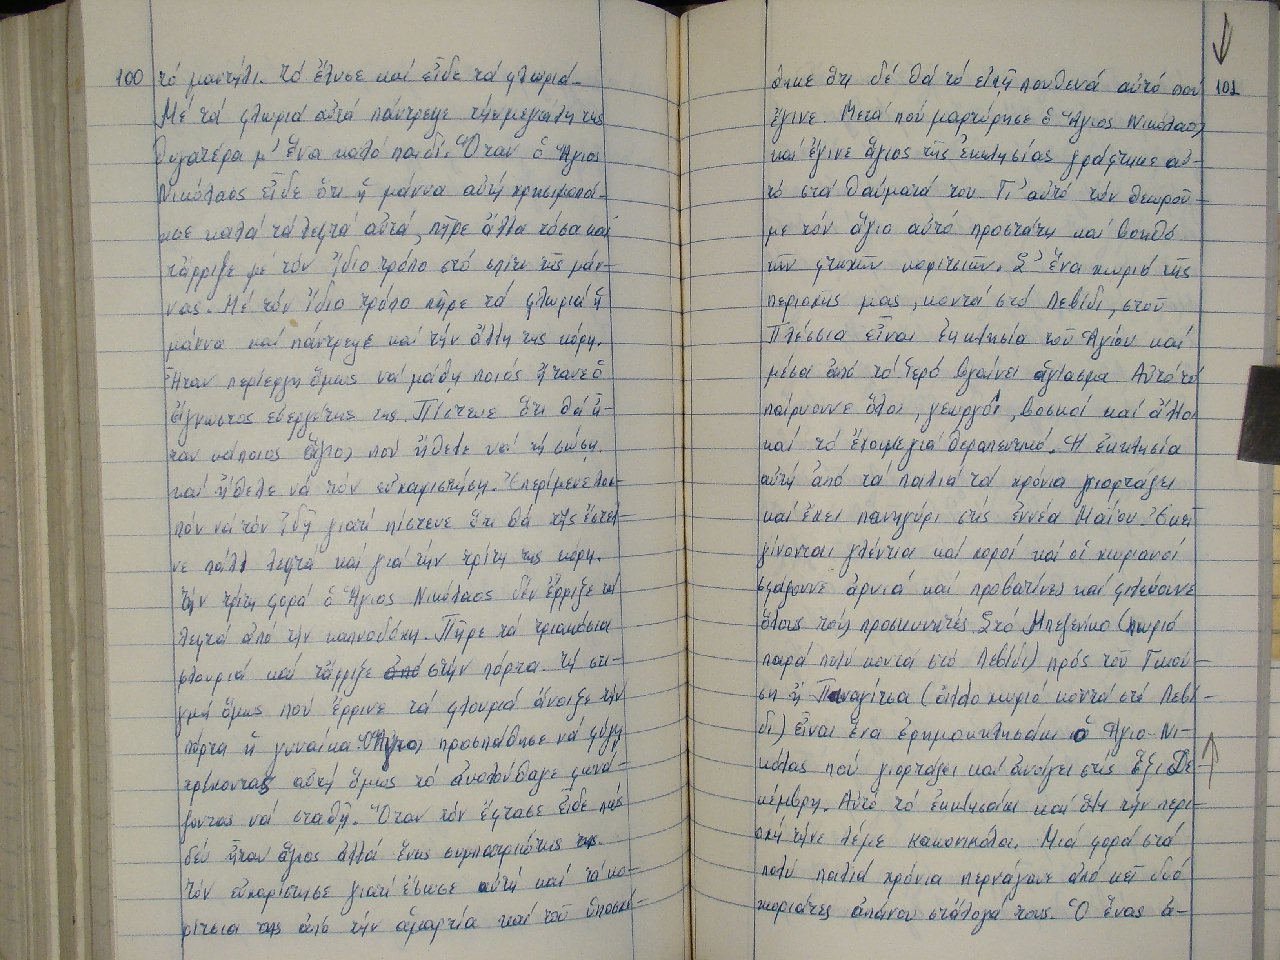 100 τό μαντήλι. Τό ἔλυσε καί εἶδε τά φλωριά.
Μέ τά φλωριά αὐτά πάντρεψε τήν μεγάλη της
θυγατέρα μ' ἕνα καλό παιδί. Ὅταν ὁ Ἅγιος
Νικόλαος εἶδε ὅτι ἡ μάννα αὐτή χρησιμοποί-
ησε καλά τά λεφτά αὐτά, πῆρε ἄλλα τόσα καί
τἄρριξε μέ τόν ἴδιο τρόπο στό σπίτι τῆς μάν-
νας. Μέ τόν ἴδιο τρόπο πῆρε τά φλωριά ἡ
μάννα καί πάντρεψε καί τήν ἄλλη της κόρη.
Ἤταν περίεργη ὅμως νά μάθη ποιός ἤτανε ὁ
ἄγνωστος εὐεργέτης της. Πίστευε ὅτι θά ἤ-
ταν κάποιος ἅγιος πού ἤθελε νά τή σώση.
καί ἤθελε νά τόν εὐχαριστήση. Ἐπερίμενε λοι-
πόν νά τόν ἰδῆ γιατί πίστευε ὅτι θά τῆς ἔστελ-
νε πάλι λεφτά καί γιά τήν τρίτη της κόρη.
Τήν τρίτη φορά ὁ Ἅγιος Νικόλαος δέν ἔρριξε τά
λεφτά ἀπό τήν καπνοδόχη. Πῆρε τά τριακόσια
φλουριά καί τἄρριξε ἀπό στήν πόρτα. Τή στι-
γμή ὅμως πού ἔρρινε τά φλουριά ἄνοιξε τήν
πόρτα ἡ γυναίκα. Ὁ Ἅγιος προσπάθησε νά φύγη
τρέχοντας αὐτή ὅμως τό ἀκολούθαγε φωνά-
ζοντας νά σταθῆ. Ὅταν τόν ἔφτασε εἶδε πώς
δέν ἤταν ἅγιος ἀλλά ἕνας συμπατριώτης της.
Τόν εὐχαρίστησε γιατί ἔσωσε αὐτή καί τά κο-
ρίτσια της ἀπό τήν ἁμαρτία καί τοῦ ὑποσχέ-
θηκε ὅτι δέ θά τό εἰπῆ πουθενά αὐτό πού 101
ἔγινε. Μετά πού μαρτύρησε ὁ Ἅγιος Νικόλαος
καί ἔγινε ἅγιος τῆς ἐκκλησίας γράφτηκε αὐ-
τό στά θαύματά του. Γι' αὐτό τόν θεωροῦ-
με τόν ἅγιο αὐτό προστάτη καί βοηθό
τῶν φτωχῶν κοριτσιῶν. Σ' ἕνα χωριό τῆς
περιοχῆς μας, κοντά στό Λεβίδι, στοῦ
Πλέσσια εἶναι ἐκκλησία τοῦ Ἁγίου καί
μέσα ἀπό τό ἱερό βγαίνει ἁγίασμα. Αὐτό τό
παίρνουνε ὅλοι, γεωργοί, βοσκοί καί ἄλλοι
καί τό ἔχουμε γιά θεραπευτικό. Ἡ ἐκκλησία
αὐτή ἀπό τά παλιά τά χρόνια γιορτάζει
καί ἔχει πανηγύρι στίς ἐννέα Μαΐου. Ἐκεῖ
γίνονται γλέντια καί χοροί καί οἱ χωριανοί
σφάζουνε ἀρνιά καί προβατίνες καί φιλεύουνε
ὅλους τούς προσκυνητές. Στό Μπεζενίκο (χωριό
παρά πολύ κοντά στό Λεβίδι) πρός τοῦ Γκιού-
ση ἤ Παναγίτσα (ἄλλο χωριό κοντά στό Λεβί-
δι) εἶναι ἕνα ἐρημοκκλησάκι ὁ Ἅγιο-Νι-
κόλας πού γιορτάζει καί ἀνοίγει στίς ἕξι Δε-
κέμβρη. Αὐτό τό ἐκκλησάκι καί ὅλη τήν περι-
οχή τήνε λέμε κακονικόλα. Μιά φορά στά
πολύ παλιά χρόνια περνάγανε ἀπό κεῖ δυό
χωριάτες ἀπάνου στἄλογά τους. Ὁ ἕνας ἀ-